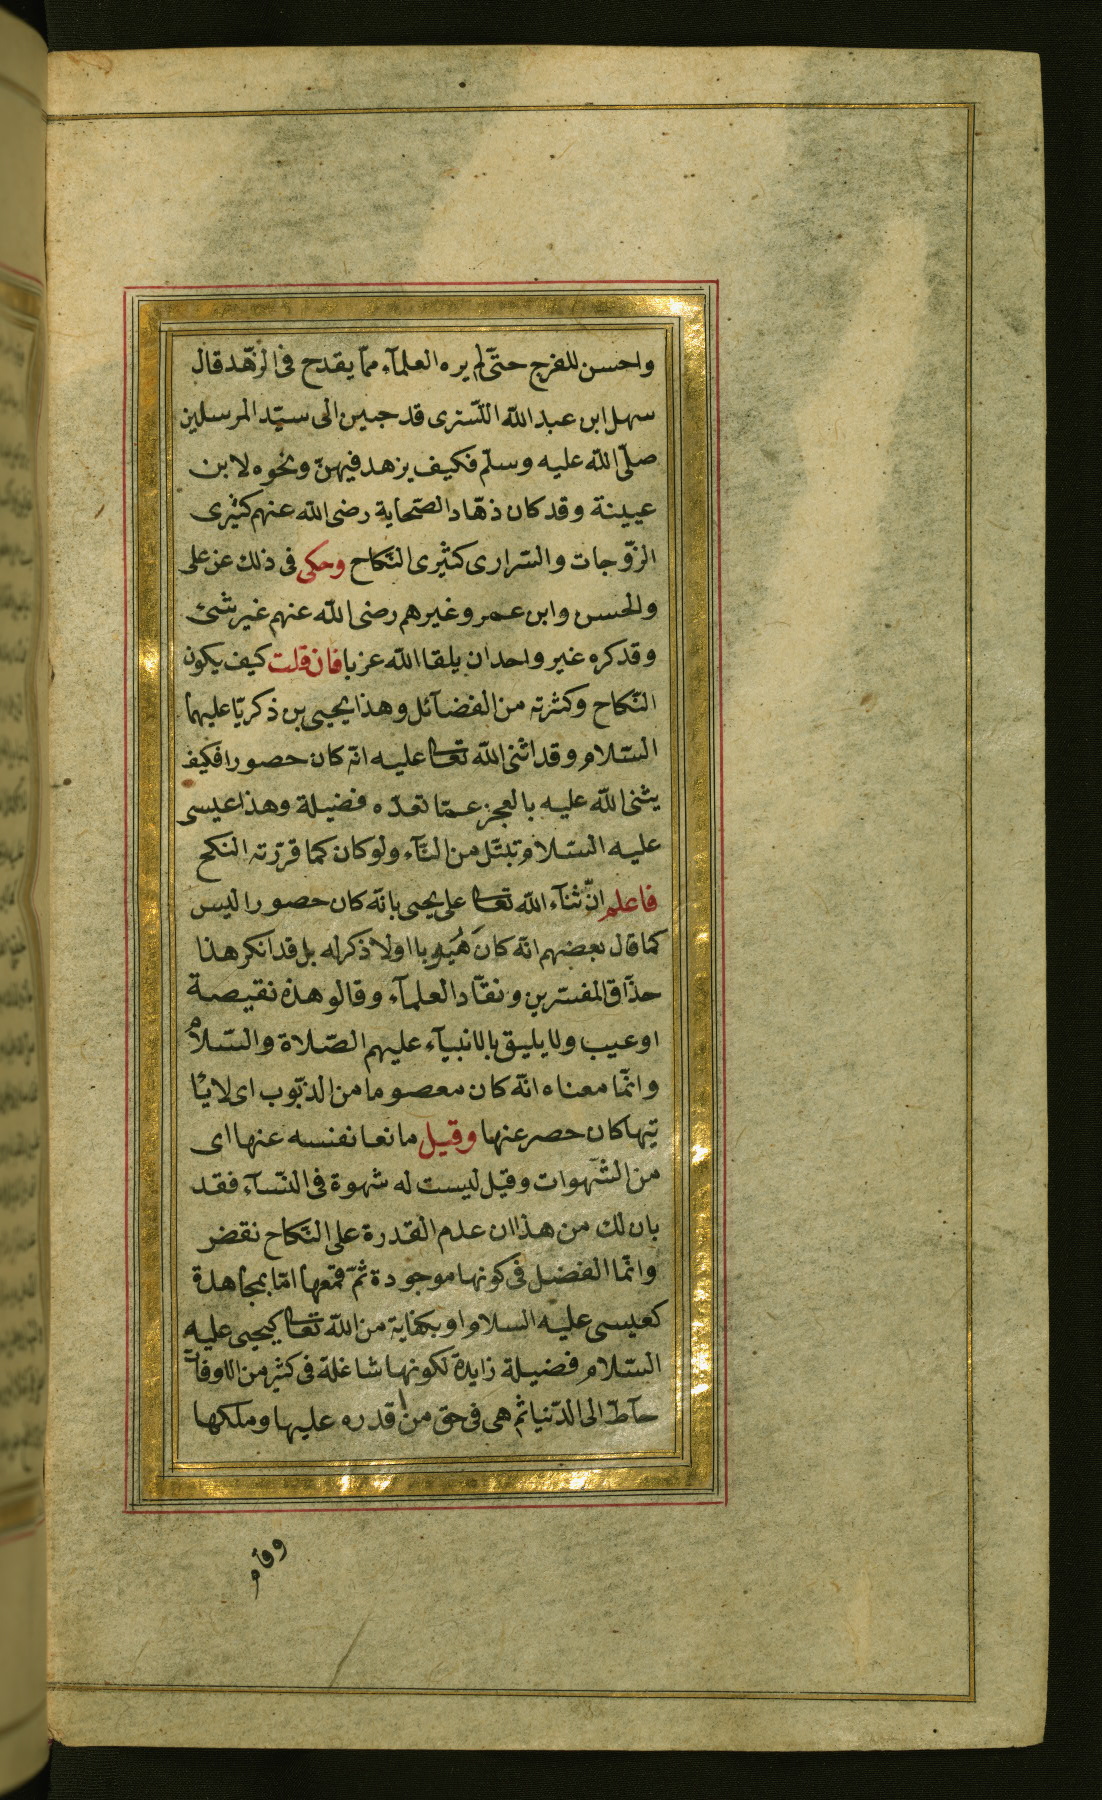 واحسن للفرج حتّى لم يره العلمآء ممّا يقدح فى الزّهد قال
سهل ابن عبد اللّه التّسترى قد حببن الى سيّد المرسلين
صلّى اللّه عليه وسلّم فكيف يزهد فيهنّ ونحوه لابن
عيينة وقد كان ذهّاد الصّحابة رضى اللّه عنهم كثيرى
الزّوجات والسّرارى كثيرى النّكاح وحكى فى ذلك عن على
والحسن وابن عمر وغيرهم رضى اللّه عنهم غير شئ
وقد كره غير واحد ان يلقا اللّه عزبا فان قلت كيف يكون
النّكاح وكثرته من الفضآئل وهذا يحيى بن ذكريّا عليهما
السّلام وقد اثنى اللّه تعالى عليه انّه كان حصورا فكيف
يثنى اللّه عليه بالعجز عمّا تعدّه فضيلة وهذا عيسى
عليه السّلام تبتّل من النّآء ولو كان كما قرّرته النكح
فاعلم انّ ثنآء اللّه تعالى على يحيى بانّه كان حصورا ليس
كما قال بعضهم انّه كان هُيوبا او لا ذكر له بل قد انكر هذا
حذّاق المفسّرين ونقّاد العلمآء وقالو هذه نقيصة
او عيب ولا يليق بالانبيآء عليهم الصّلاة والسّلام
وانّما معناه انّه كان معصوما من الذّبوب اى لا ياْ
تيها كان حصر عنها وقيل مانعا نفسه عنها اى
من الشّهوات وقيل ليست له شهوة فى النّسآء فقد
بان لك من هذا ان عدم القدرة على النّكاح نقض
وانّما الفضل فى كونها موجودة ثمّ قمعها امّا بمجاهدة
كعيسى عليه السلام او بكفاية من اللّه تعالى كيحيى عليه
السّلام فضيلة زايدة لكونها شاغلة فى كثير من الاوقات
حآطّ الى الدّنيا ثم هى فى حق من اقدره عليها وملكها
وقام